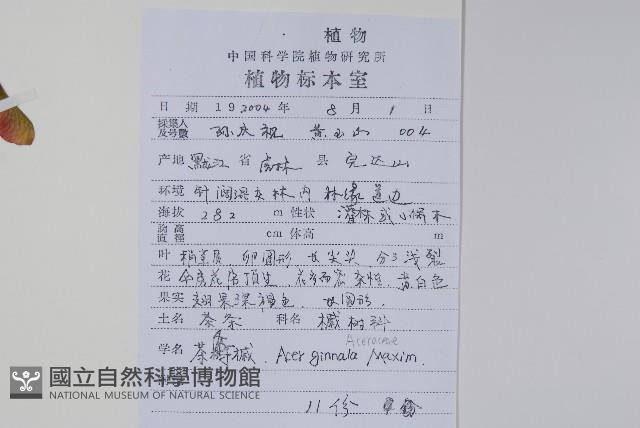 植物
中国科学院植物研究所
植物标本室
日期 19 2004 年 8 月 1 日
采集人及号数 孙庆祝 黄玉山 004
产地 黑龙江 省 虎林 县 完达山
环境 针阔混交林内 林缘 道边
海拔 282 m 性状 灌木或小乔木
胸高直径 cm 体高 m
叶 卵圆形 尖头 分三浅裂
花 顶生 杂性 黄白色
果实 翅果深褐色
土名 茶条 科名 槭树科
Aceraceae
学名 茶条槭 Acer ginnala Maxim.
11份
國立自然科學博物館
NATIONAL MUSEUM OF NATURAL SCIENCE